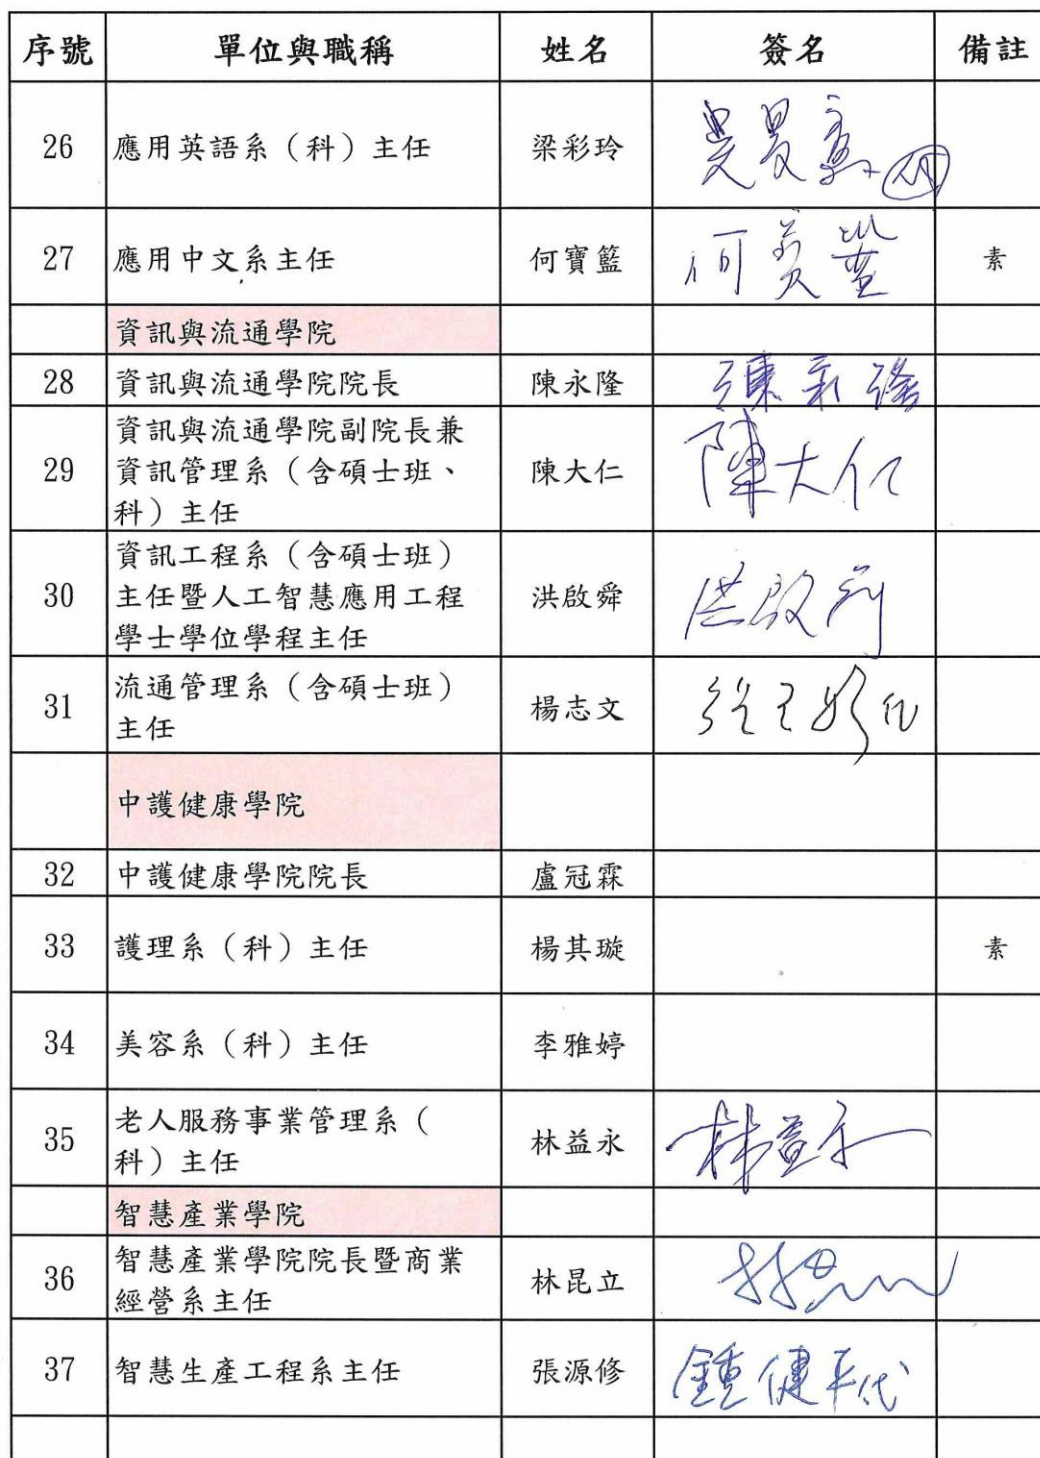 序號 單位與職稱 姓名 簽名 備註
26 應用英語系（科）主任 梁彩玲
27 應用中文系主任 何寶籃 素
資訊與流通學院
28 資訊與流通學院院長 陳永隆
資訊與流通學院副院長兼
29 資訊管理系（含碩士班、 陳大仁 陳大仁
科）主任
資訊工程系（含碩士班）
30 主任暨人工智慧應用工程 洪啟舜
學士學位學程主任
流通管理系（含碩士班）
31 主任 楊志文
中護健康學院
32 中護健康學院院長 盧冠霖
33 護理系（科）主任 楊其璇 素
34 美容系（科）主任 李雅婷
老人服務事業管理系（
35 科）主任 林益永 林益永
智慧產業學院
智慧產業學院院長暨商業
36 經營系主任 林昆立
37 智慧生產工程系主任 張源修 鍾健平代